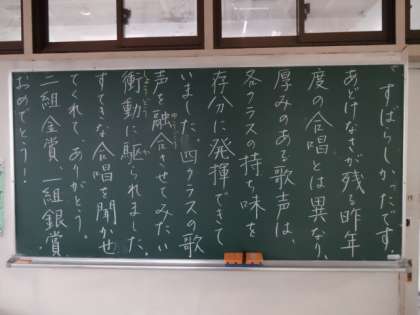 すばらしかったです。
あどけなさが残る昨年
度の合唱とは異なり、
厚みのある歌声は、
各クラスの持ち味を
存分に発揮できて
いました。四クラスの歌
声を融合させてみたい
衝動に駆られました。
すてきな合唱を聞かせ
てくれて、ありがとう。
二組金賞、一組銀賞
おめでとう！